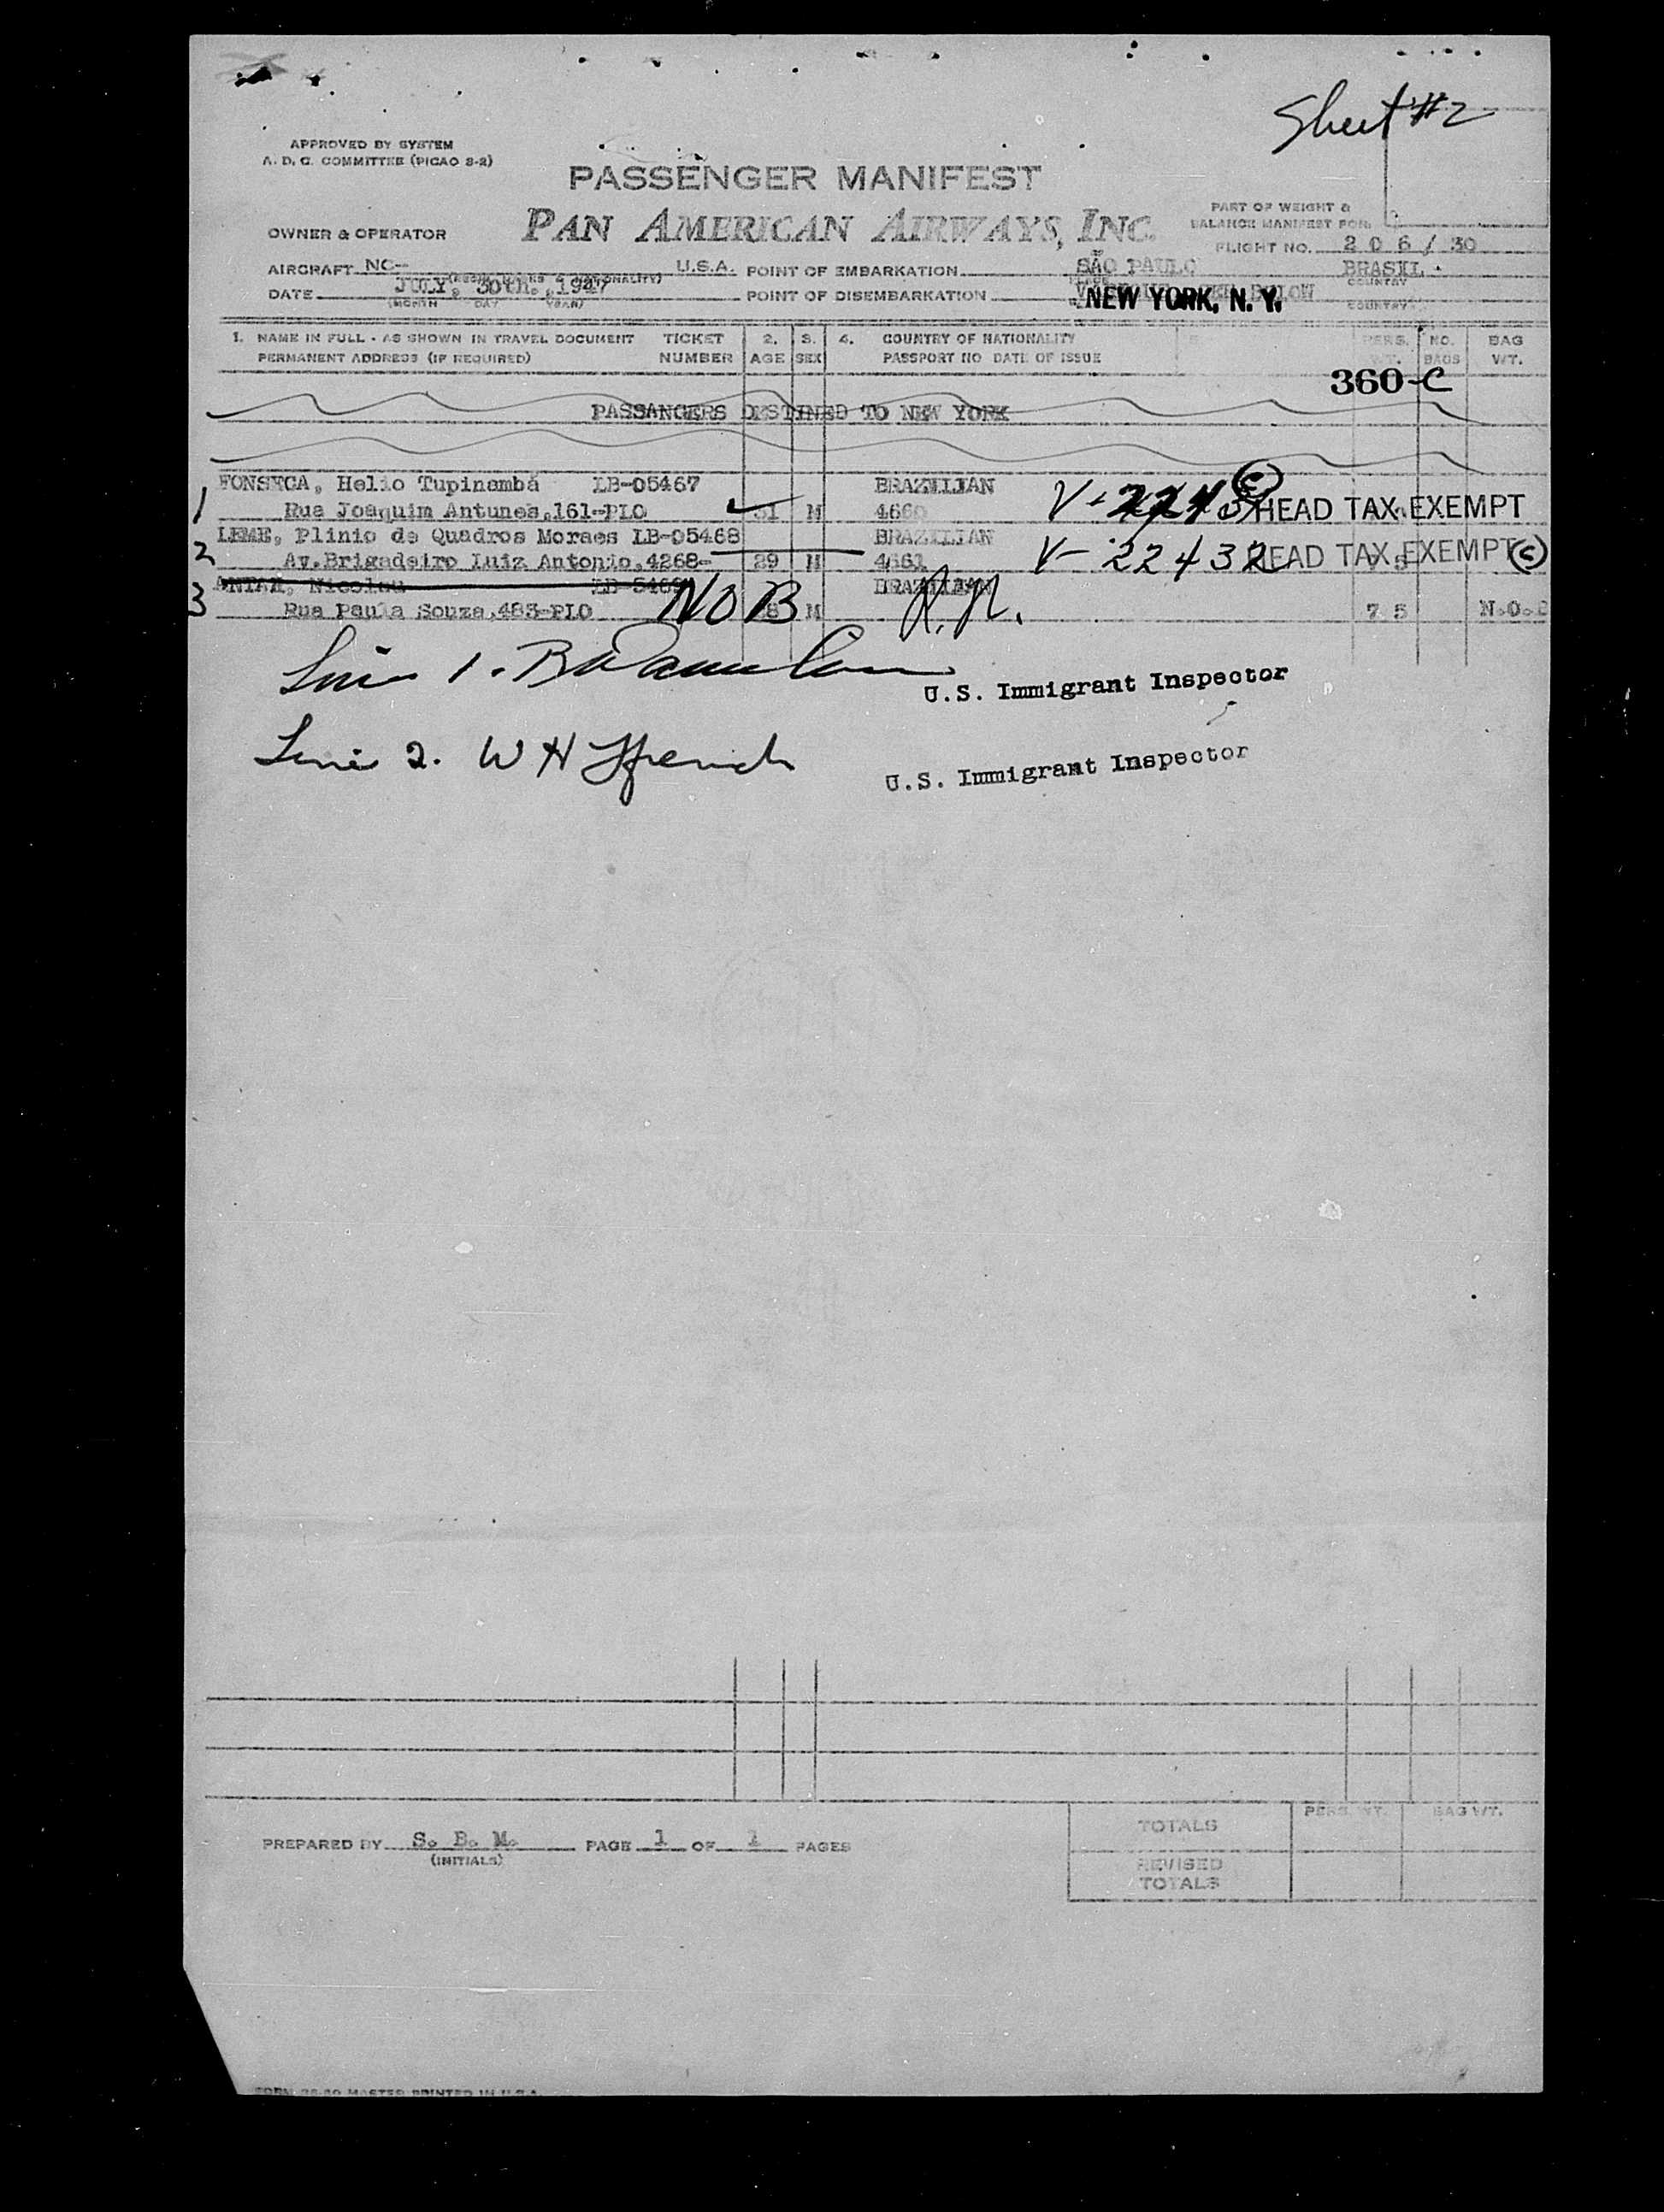 Sheet #2
APPROVED BY SYSTEM
A. D. C. COMMITTEE (PICAO 8-2)
PASSENGER MANIFEST
PAN AMERICAN AIRWAYS, INC.
OWNER & OPERATOR
PART OF WEIGHT &
BALANCE MANIFEST FOR:
FLIGHT NO. 206/30
AIRCRAFT NC-- U.S.A. POINT OF EMBARKATION SÃO PAULO BRASIL.
DATE JULY, 30th. ,1947 POINT OF DISEMBARKATION NEW YORK, N. Y.
(MONTH DAY YEAR) COUNTRY
1. NAME IN FULL - AS SHOWN IN TRAVEL DOCUMENT TICKET 2. 3. 4. COUNTRY OF NATIONALITY PERS. NO. BAG
PERMANENT ADDRESS (IF REQUIRED) NUMBER AGE SEX PASSPORT NO DATE OF ISSUE WT. BAGS WT.
360-C
PASSANGERS DESTINED TO NEW YORK
FONSECA, Helio Tupinambá LB-05467 BRAZILIAN
1 Rua Joaquim Antunes,161-PLO 31 M 4660 HEAD TAX EXEMPT
LEME, Plinio de Quadros Moraes LB-05468 BRAZILIAN
2 Av.Brigadeiro Luiz Antonio,4268- 29 M 4661 V- 22432 HEAD TAX EXEMPT (c)
ANTAR, Nicolau BRAZILIAN
3 Rua Paula Souza,483-PLO NOB M R.N. 75 N.O.B
Line 1.
U.S. Immigrant Inspector
Line 2. W H
U.S. Immigrant Inspector
PREPARED BY S. B. M. PAGE 1 OF 1 PAGES
(INITIALS)
TOTALS PERS. WT. BAG WT.
REVISED
TOTALS